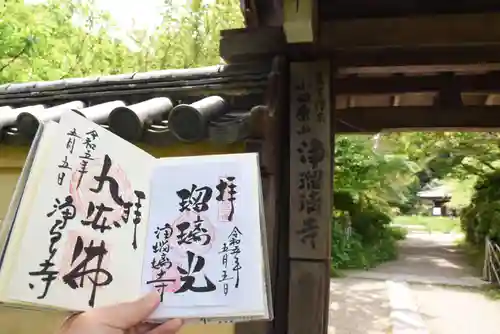 小田原山
浄瑠璃寺
拝
瑠璃光
令和五年
五月五日
浄瑠璃寺
拝
九体佛
令和五年
五月五日